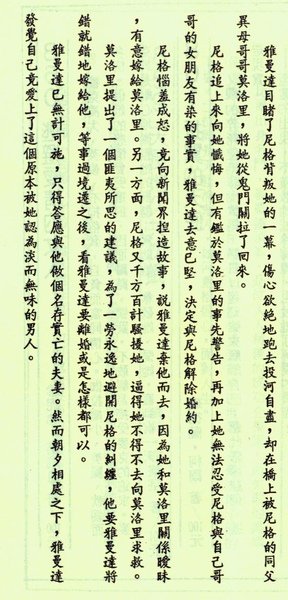 雅曼達目睹了尼格背叛她的一幕，傷心欲絕地跑去投河自盡，卻在橋上被尼格的同父
異母哥哥莫洛里，將她從鬼門關拉了回來。
尼格追上來向她懺悔，但有鑑於莫洛里的事先警告，再加上她無法忍受尼格與自己哥
哥的女朋友有染的事實，雅曼達去意已堅，決定與尼格解除婚約。
尼格惱羞成怒，竟向新聞界捏造故事，說雅曼達棄他而去，因為她和莫洛里關係曖昧
，有意嫁給莫洛里。另一方面，尼格又千方百計騷擾她，逼得她不得不去向莫洛里求救。
莫洛里提出了一個匪夷所思的建議，為了一勞永逸地避開尼格的糾纏，他要雅曼達將
錯就錯地嫁給他，等事過境遷之後，看雅曼達要離婚或是怎樣都可以。
雅曼達已無計可施，只得答應與他做個名存實亡的夫妻。然而朝夕相處之下，雅曼達
發覺自己竟愛上了這個原本被她認為淡而無味的男人。